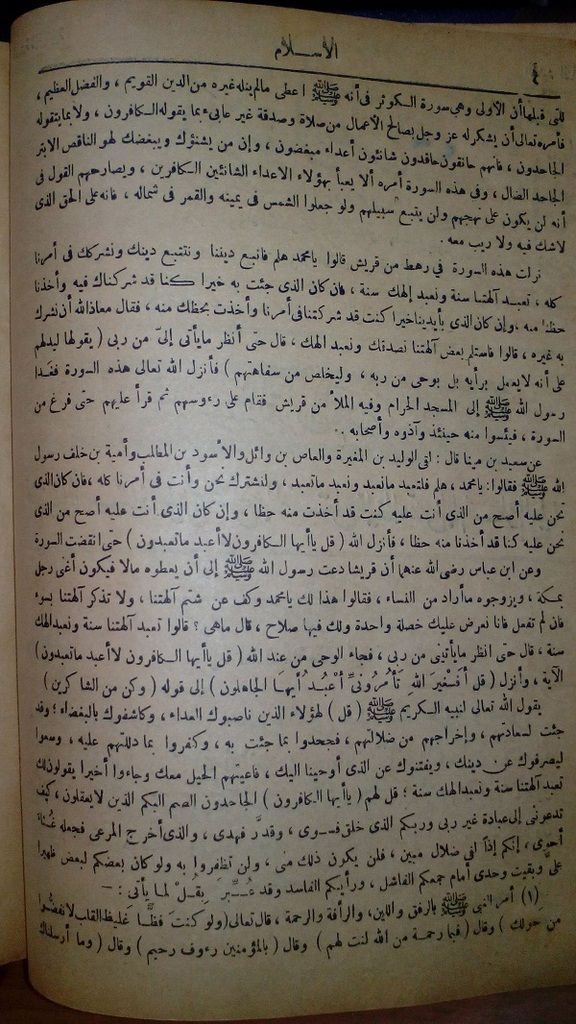 الأســلام
٤
للتى قبلها أن الأولى وهى سورة الـكوثر فى أنه ﷺ اعطى مالم ينله غيره من الدين القويم ، والفضل العظيم ،
فأمره تعالى أن يشكر له عز وجل بصالح الأعمال من صلاة وصدقة غير عابىء بما يقوله الـكافرون ، ولا بما يتقوله
الجاحدون ، فأنهم حانقون حاقدون شانئون أعداء مبغضون ، وإن من يشنؤك ويبغضك لهو الناقص الابتر
الجاحد الضال ، وفى هذه السورة أمره ألا يعبأ بهؤلاء الاعداء الشانئين الـكافرين ، ويصارحهم القول فى
أنه لن يكون على نهجهم ولن يتبع سبيلهم ولو جعلوا الشمس فى يمينه والقمر فى شماله ، فانه على الحق الذى
لاشك فيه ولا ريب معه .
نزلت هذه السورة فى رهط من قريش قالوا يامحمد هلم فاتبع ديننا ونتبع دينك ونشركك فى أمرنا
كله ، تعبـد آلهتنا سنة ونعبد إلهك سنة ، فان كان الذى جئت به خيرا كنا قد شركناك فيه وأخذنا
حظنا منه . وإن كان الذى بأيدينا خيرا كنت قد شركتنا فى أمرنا وأخذت بحظك منه ، فقال معاذ الله أن نشرك
به غيره ، قالوا فاستلم بعض آلهتنا نصدقك ونعبد الهك ، قال حتى أنظر ما يأتى إلىّ من ربى ( يقولها ليدلهم
على أنه لايعمل برأيه بل بوحى من ربه ، وليخلص من سفاهتهم ) فأنزل الله تعالى هذه السورة فغـدا
رسول الله ﷺ إلى المسجد الحرام وفيه الملأ من قريش فقام على رءوسهم ثم قرأ عليهم حتى فرغ من
السورة ، فيئسوا منه حينئذ وآذوه وأصحابه .
عن سعيد بن مينا قال : اتى الوليد بن المغيرة والعاص بن وائل والأسود بن المطلب وأمية بن خلف رسول
الله ﷺ فقالوا : يامحمد ، هلم فلتعبد مانعبد ونعبد ماتعبد ، ولنشترك نحن وأنت فى أمرنا كله ، فان كان الذى
نحن عليه أصح من الذى أنت عليه كنت قد أخذت منه حظا ، وإن كان الذى أنت عليه أصح من الذى
نحن عليه كنا قد أخذنا منه حظا ، فأنزل الله ( قل ياأيها الـكافرون لاأعبد ماتعبدون ) حتى انقضت السورة
وعن ابن عباس رضى الله عنهما أن قريشا دعت رسول الله ﷺ إلى أن يعطوه مالا فيكون أغنى رجل
بمـكة ، ويزوجوه ماأراد من النساء ، فقالوا هذا لك يامحمد وكف عن شتم آلهتنا ، ولا تذكر آلهتنا بسوء
فان لم تفعل فانا نعرض عليك خصلة واحدة ولك فيها صلاح ، قال ماهى ؟ قالوا تعبد آلهتنا سنة ونعبد الهك
سنة ، قال حتى انظر مايأتينى من ربى ، فجاء الوحى من عند الله ( قل ياأيها الـكافرون لاأعبد ماتعبدون )
الآية ، وأنزل ( قل أَفَغيرَ اللهِ تَأْمُرُونِّى أعْبـدُ أيهـا الجاهلون ) إلى قوله ( وكن من الشاكرين )
يقول الله تعالى لنبيه الـكريم ﷺ ( قل ) لهؤلاء الذين ناصبوك العداء ، وكاشفوك بالبغضاء ؛ وقد
جئت لسعادتهم ، وإخراجهم من ضلالتهم ، فجحدوا بما جئت به ، وكفروا بما دللتهم عليه ، وسعوا
ليصرفوك عن دينك ، ويفتنوك عن الذى أوحينا اليك ، فاعيتهم الحيل معك وجاءوا أخيرا يقولون لك
تعبد آلهتنا سنة ونعبد الهك سنة ؛ قل لهم ( ياأيها الـكافرون ) الجاحدون الصم البكم الذين لايعقلون ، كيف
تدعوننى إلى عبادة غير ربى وربكم الذى خلق فسوى ، وقدَّر فهدى ، والذى أخرج المرعى فجعله غُثاء
أحوى ، إنكم إذاً لفى ضلال مبين ، فلن يكون ذلك منى ، ولن تظفروا به ولو كان بعضكم لبعض ظهيرا
علىَّ وبقيت وحدى أمام جمعكم الفاشل ، ورأيكم الفاسد وقد بقلْ لمـا يأتى : —
(١) أمر النبى ﷺ بالرفق واللين ، والرأفة والرحمة ، قال تعالى ( ولو كنت فظًّا غليظ القلب لانفضُّوا
من حولك ) وقال ( فبما رحمـة من الله لنت لهم ) وقال ( بالمؤمنين رءوف رحيم ) وقال ( وما أرسلناك